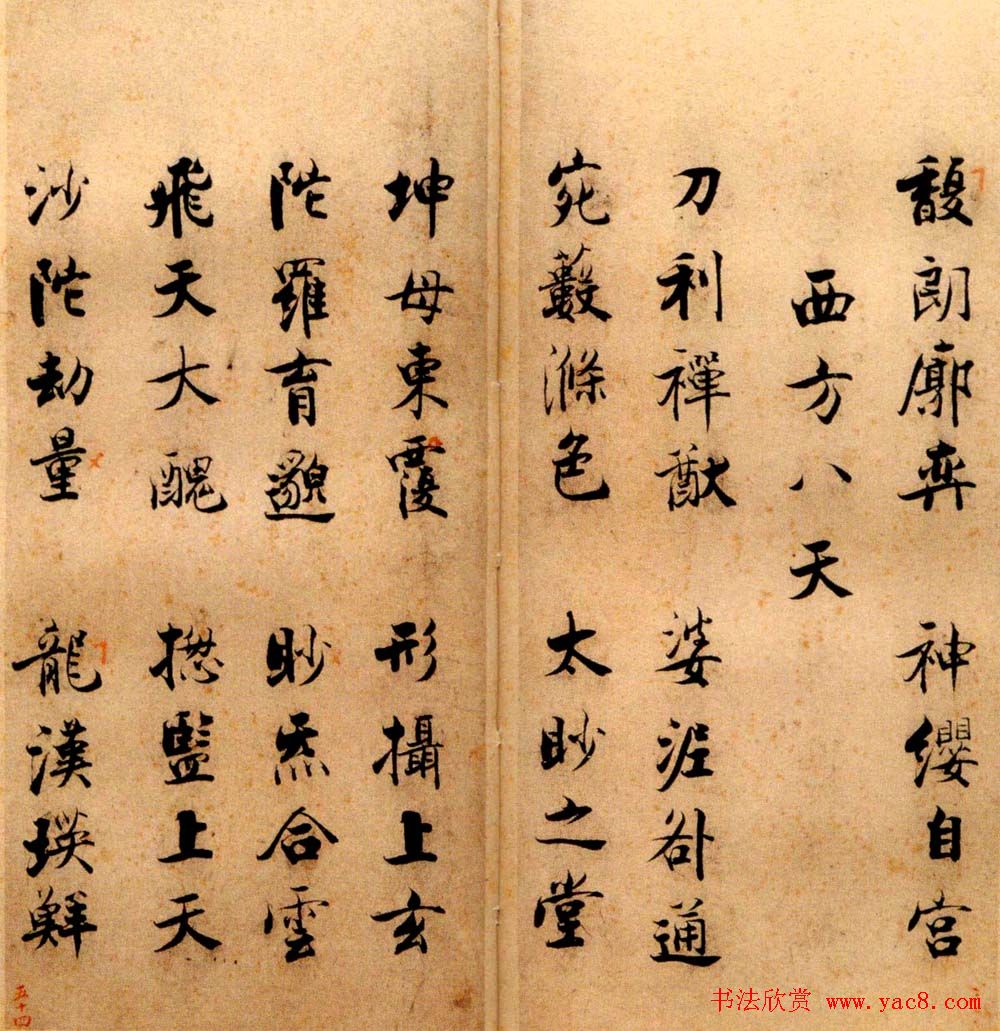 馥朗廓弈　神纓自宮
西方八天
刀利禪猷　婆泥咎通
宛藪滌色　太眇之堂
坤母東覆　形攝上玄
陀羅育邈　眇炁合雲
飛天大醜　揔監上天
沙陀劫量　龍漢瑛鮮
五十四
书法欣赏 www.yac8.com